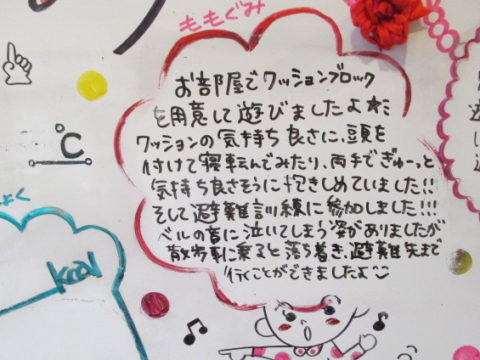 ももぐみ
お部屋でクッションブロック
を用意して遊びましたよ☆ミ
クッションの気持ち良さに、頭を
付けて寝転んでみたり、両手でぎゅーっと
気持ち良さそうに抱きしめていました!!
そして避難訓練に参加しました!!!
ベルの音に泣いてしまう姿がありましたが
散歩車に乗ると落ち着き、避難先まで
行くことができましたよ☺
℃
kcal